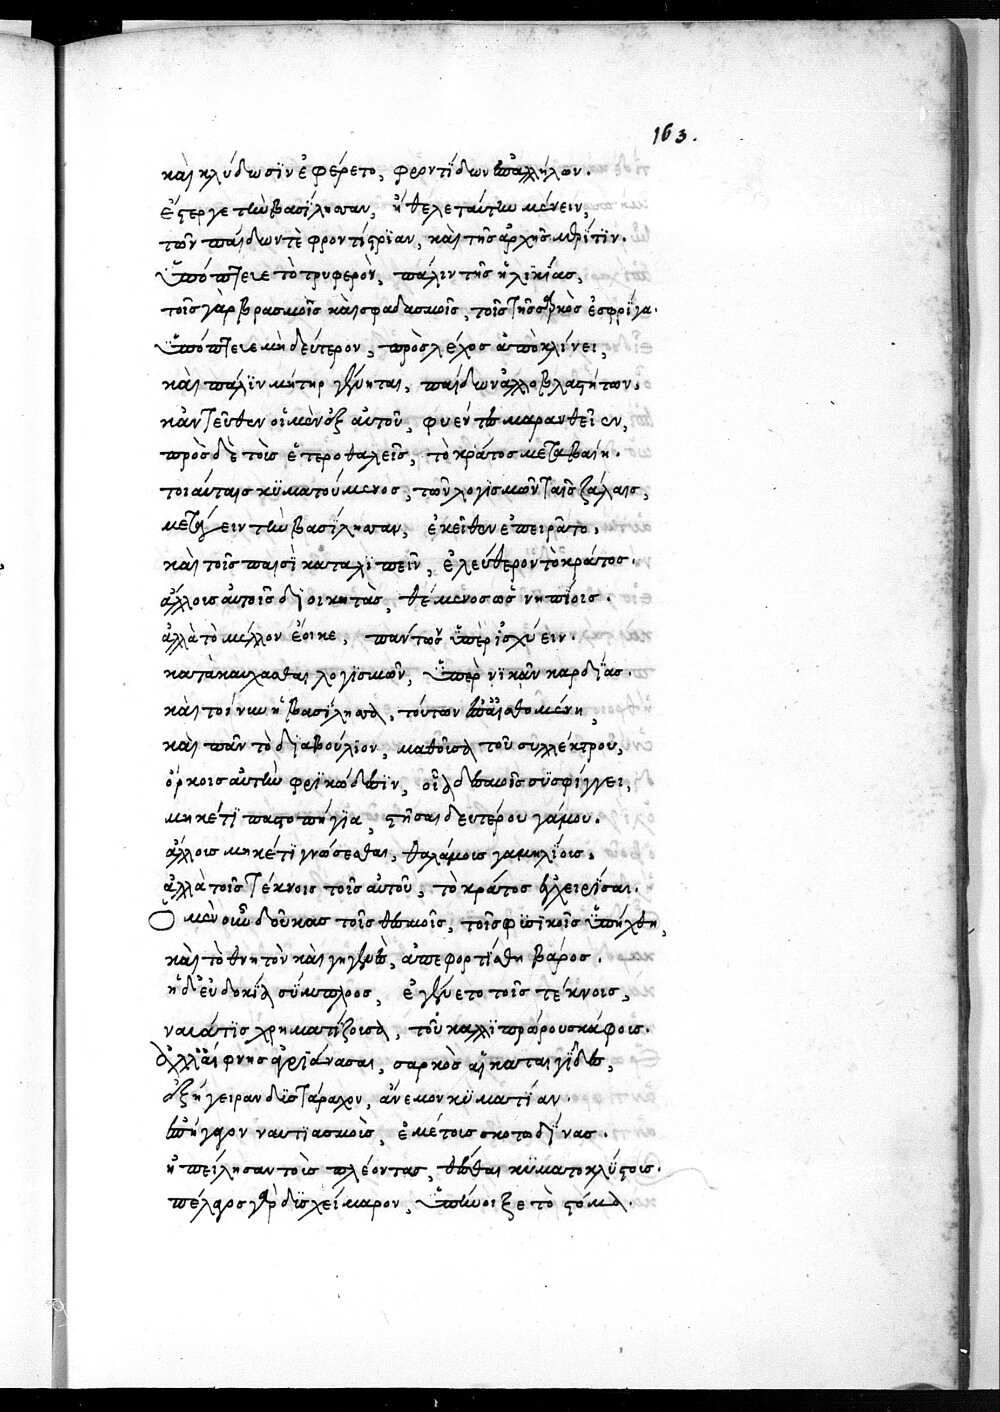 163.
καὶ κλύδωσϊν ἐφέρετο, φροντίδων ἐπαλλήλων.
ἔστεργε τὴν βασίλισσαν, ἤθελε ταύτην μένειν,
τῶν παίδων τὲ φροντίστρϊαν, καὶ τῆς ἀρχῆς μερίτϊν.
ὑπόπτευε τὸ τρυφερὸν, πάλιν τῆς ἡλικίας,
τοῖς γὰρ βρασμοῖς καὶ σφαδασμοῖς, τοῖς τῆς σαρκὸς ἐσφρίγα.
ὑπόπτευε μὴ δεύτερον, πρὸς λέχος ἀποκλίνει,
καὶ πάλϊν μήτηρ γένηται, παίδων ἀλλοβλαστήτων,
κἀντεῦθεν οἱ μὲν ἐξ αὐτοῦ, φυέντες μαρανθεῖεν,
πρὸς δὲ τοὺς ἑτεροθαλεῖς, τὸ κράτος μεταβαίη.
τοιαύταις κϋματούμενος, τῶν λογϊσμῶν ταῖς ζάλαις,
μετάγειν τὴν βασίλισσαν, ἐκεῖθεν ἐπειρᾶτο,
καὶ τοῖς παισὶ καταλϊπεῖν, ἐλεύθερον τὸ κράτος.
ἄλλοις αὐτοῖς δϊοικητὰς, θέμενος ὡς νηπίοις.
ἀλλὰ τὸ μέλλον ἔοικε, πάντως ὑπερϊσχύειν.
κατακαυχᾶσθαι λογϊσμῶν, ὑπὲρ νϊκᾶν καρδίας.
καὶ τοίνυν ἡ βασίλισσα, τούτων ἐπαισθομένη,
καὶ πᾶν τὸ δϊαβούλϊον, μαθοῦσα τοῦ συλλέκτρου,
ὅρκοις αὐτὴν φρϊκώδεσϊν, οἷα δεσμοῖς σϋσφίγγει,
μηκέτϊ παστοπήγϊα, στῆσαι δευτέρου γάμου.
ἄλλοις μηκέτϊ γνώσεσθαι, θαλάμοις γαμηλίοις,
ἀλλὰ τοῖς τέκνοις τοῖς αὐτοῦ, τὸ κράτος ἐγχειρίσαι.
Ὁ μὲν οὖν δούκας τοῖς θεσμοῖς, τοῖς φϋσϊκοῖς ὑπήχθη,
καὶ τὸ θνητὸν καὶ γηγενὲς, ἀπεφορτίσθη βάρος.
ἡ δ' εὐδοκία σύμπλοος, ἐγένετο τοῖς τέκνοις,
ναυάτϊς χρηματίζουσα, τοῦ καλλϊπρώρου σκάφους.
Ἀλλ' αἴφνης ἀγρϊάνασαι, σαρκὸς αἱ καταιγίδες,
ἐξήγειραν δϋστάραχον, ἄνεμον κϋματίαν.
ἐπῆγον ναυτϊασμοὺς, ἐμέτους σκοτοδίνας.
ἠπείλησαν τοὺς πλέοντας, θέσθαι κϋματοκλύστους.
πέλαγος γὰρ δϋσχείμαρον, ὑπήνοιξε τὸ στόμα.